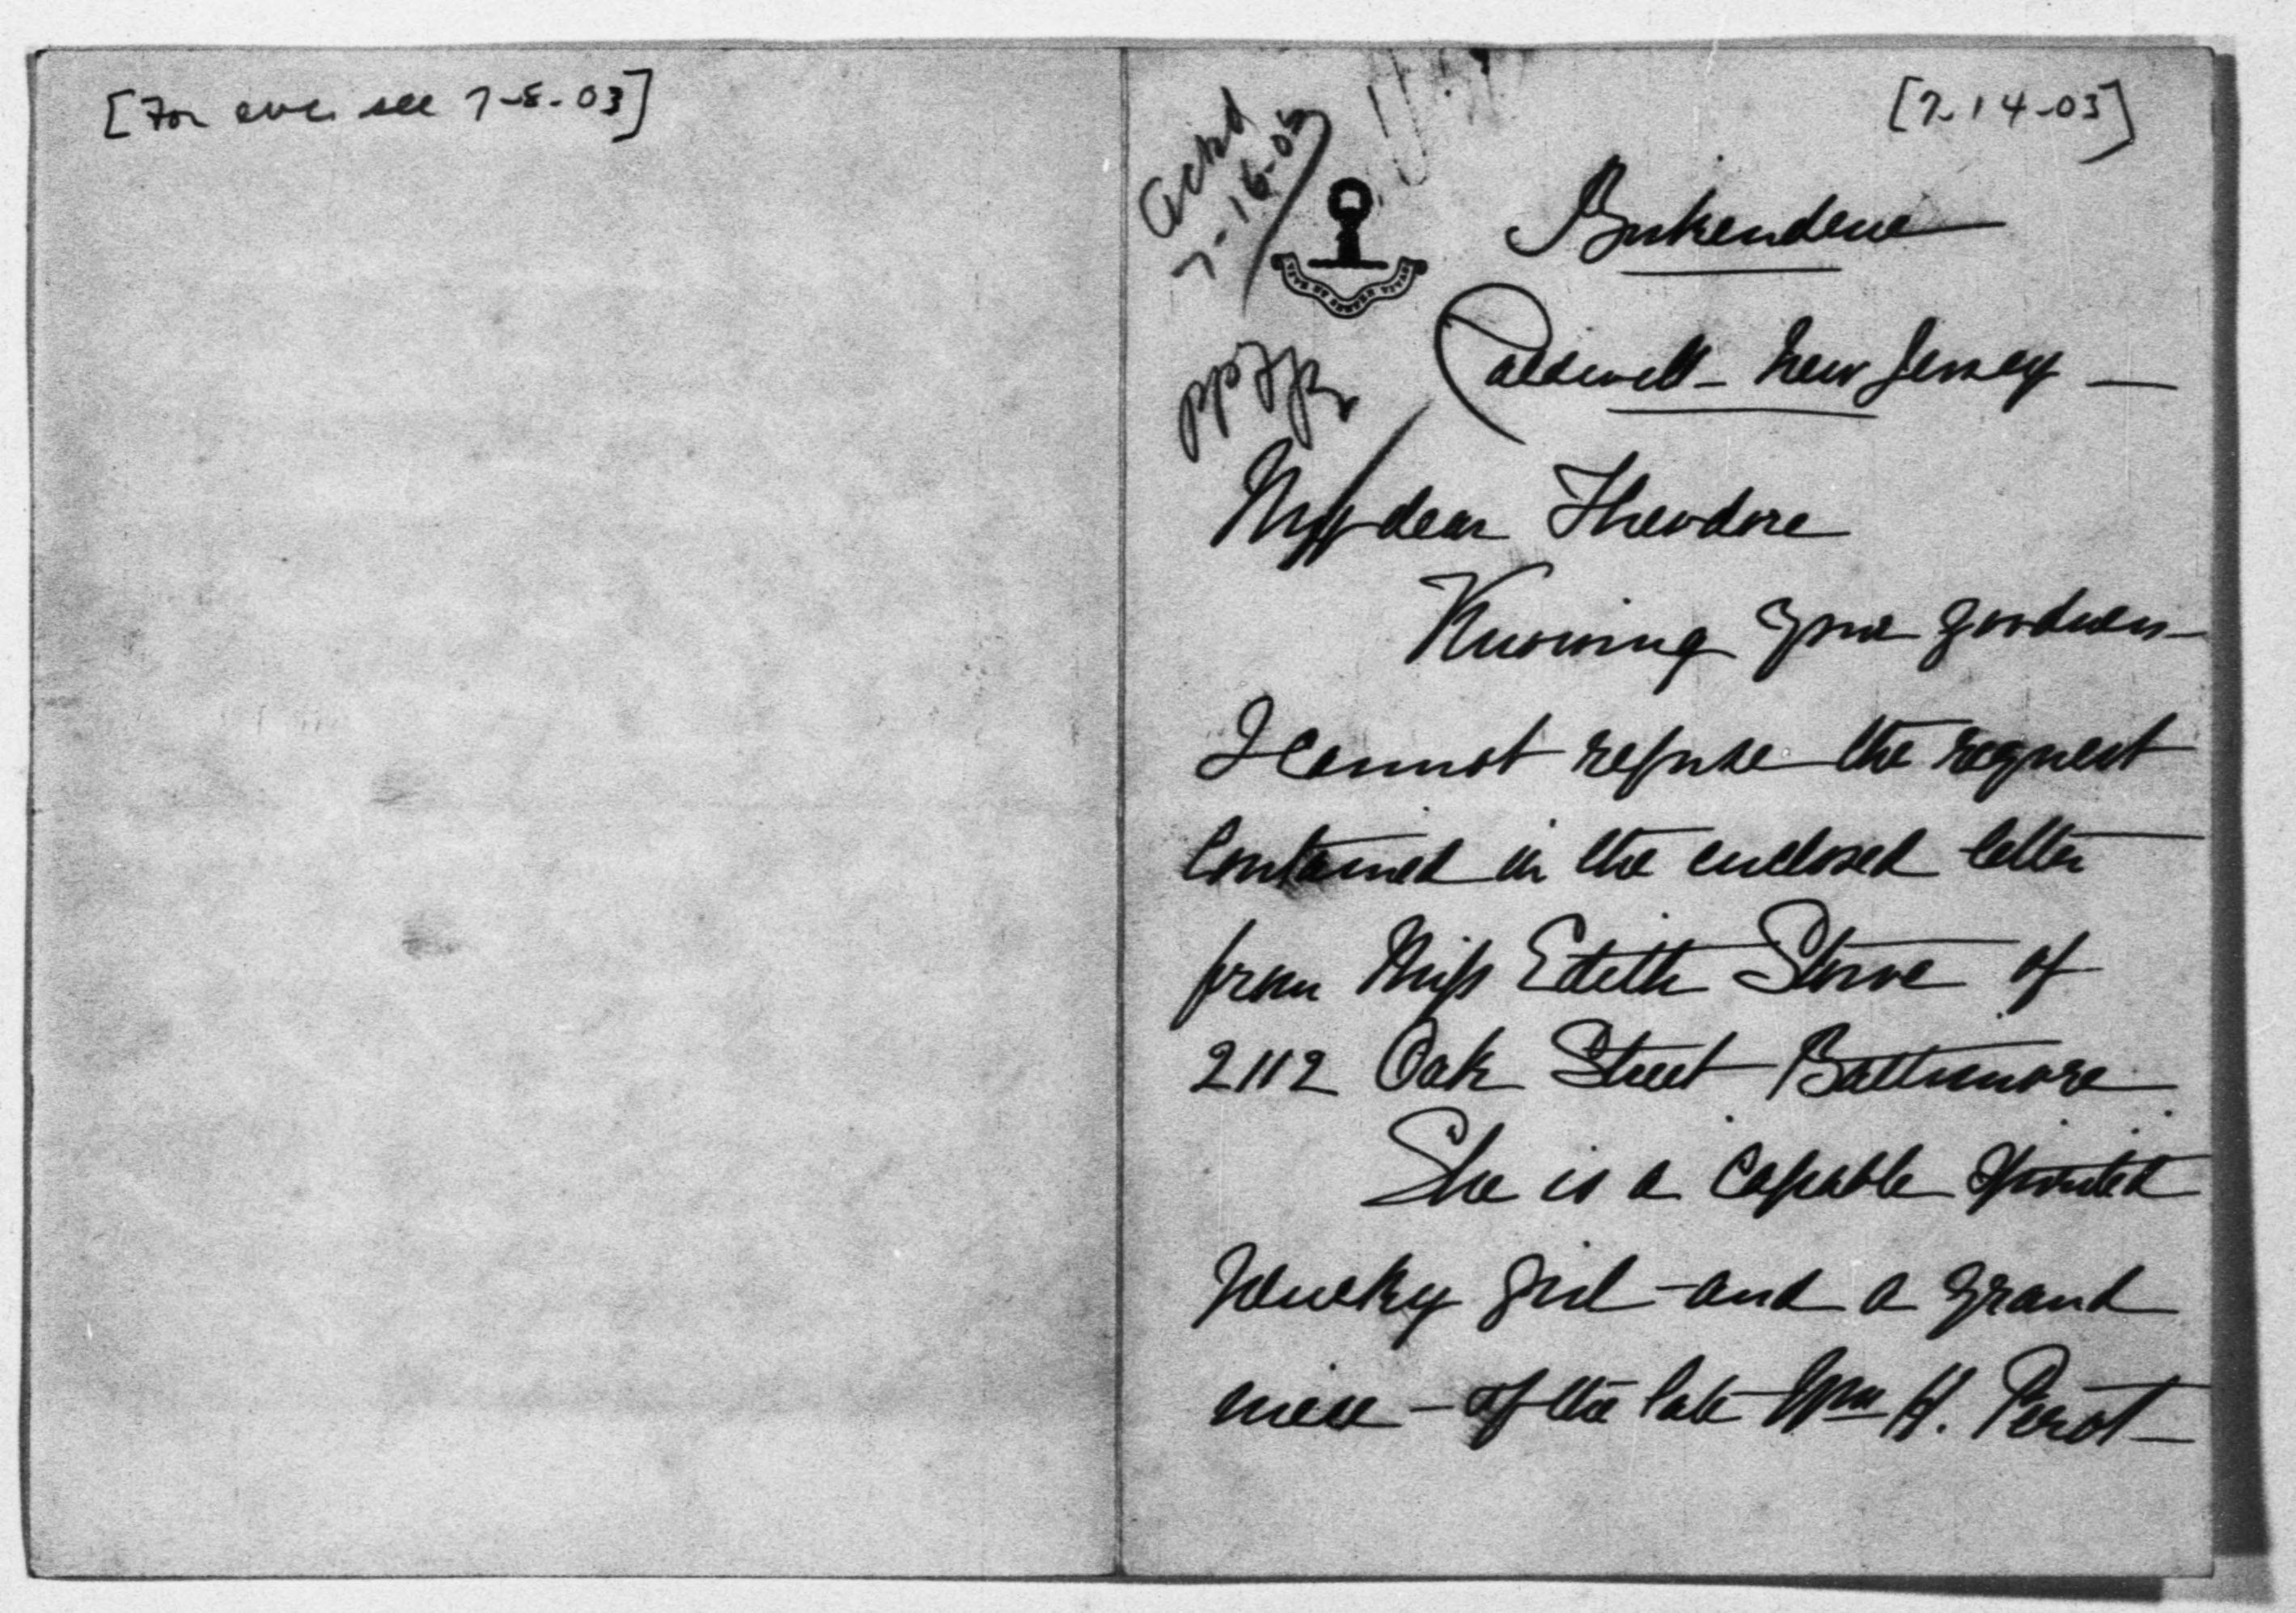 [For enc. see 7-8-03]
[7-14-03]
Ackd
7-16-03
PPF
Birkendene
Caldwell - New Jersey -
My dear Theodore
Knowing your goodness
I cannot refuse the request
contained in the enclosed letter
from Miss Edith Stowe of
2112 Oak Street Baltimore
She is a capable spirited
plucky girl - and a grand
niece - of the late Wm H. Perot -